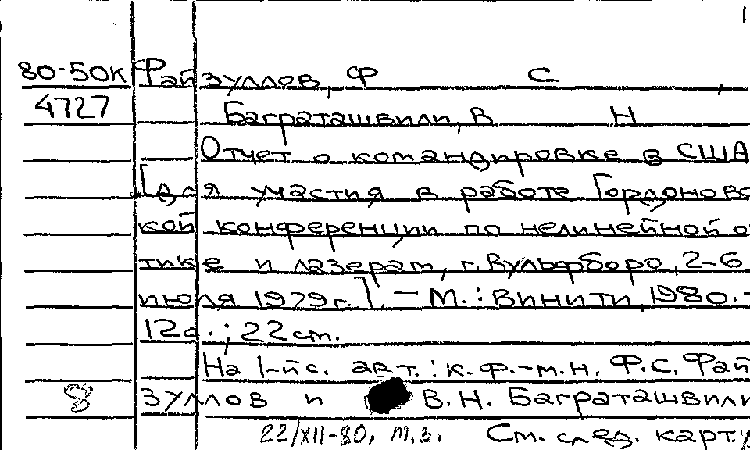 80-50к Файзуллов, Ф С
4727 Баграташвили, В Н
Отчет о командировке в США
[для участия в работе Гордоновс
кой конференции по нелинейной оп
тике и лазерам, г. Вульфборо, 2-6
июля 1979 г.] - М.: Винити, 1980. -
12с.; 22 см.
На 1-й с. авт.: к.ф.-м.н. Ф.С. Фай
8 зуллов и В.Н. Баграташвили
22/XII-80, м.з. См. след. карт